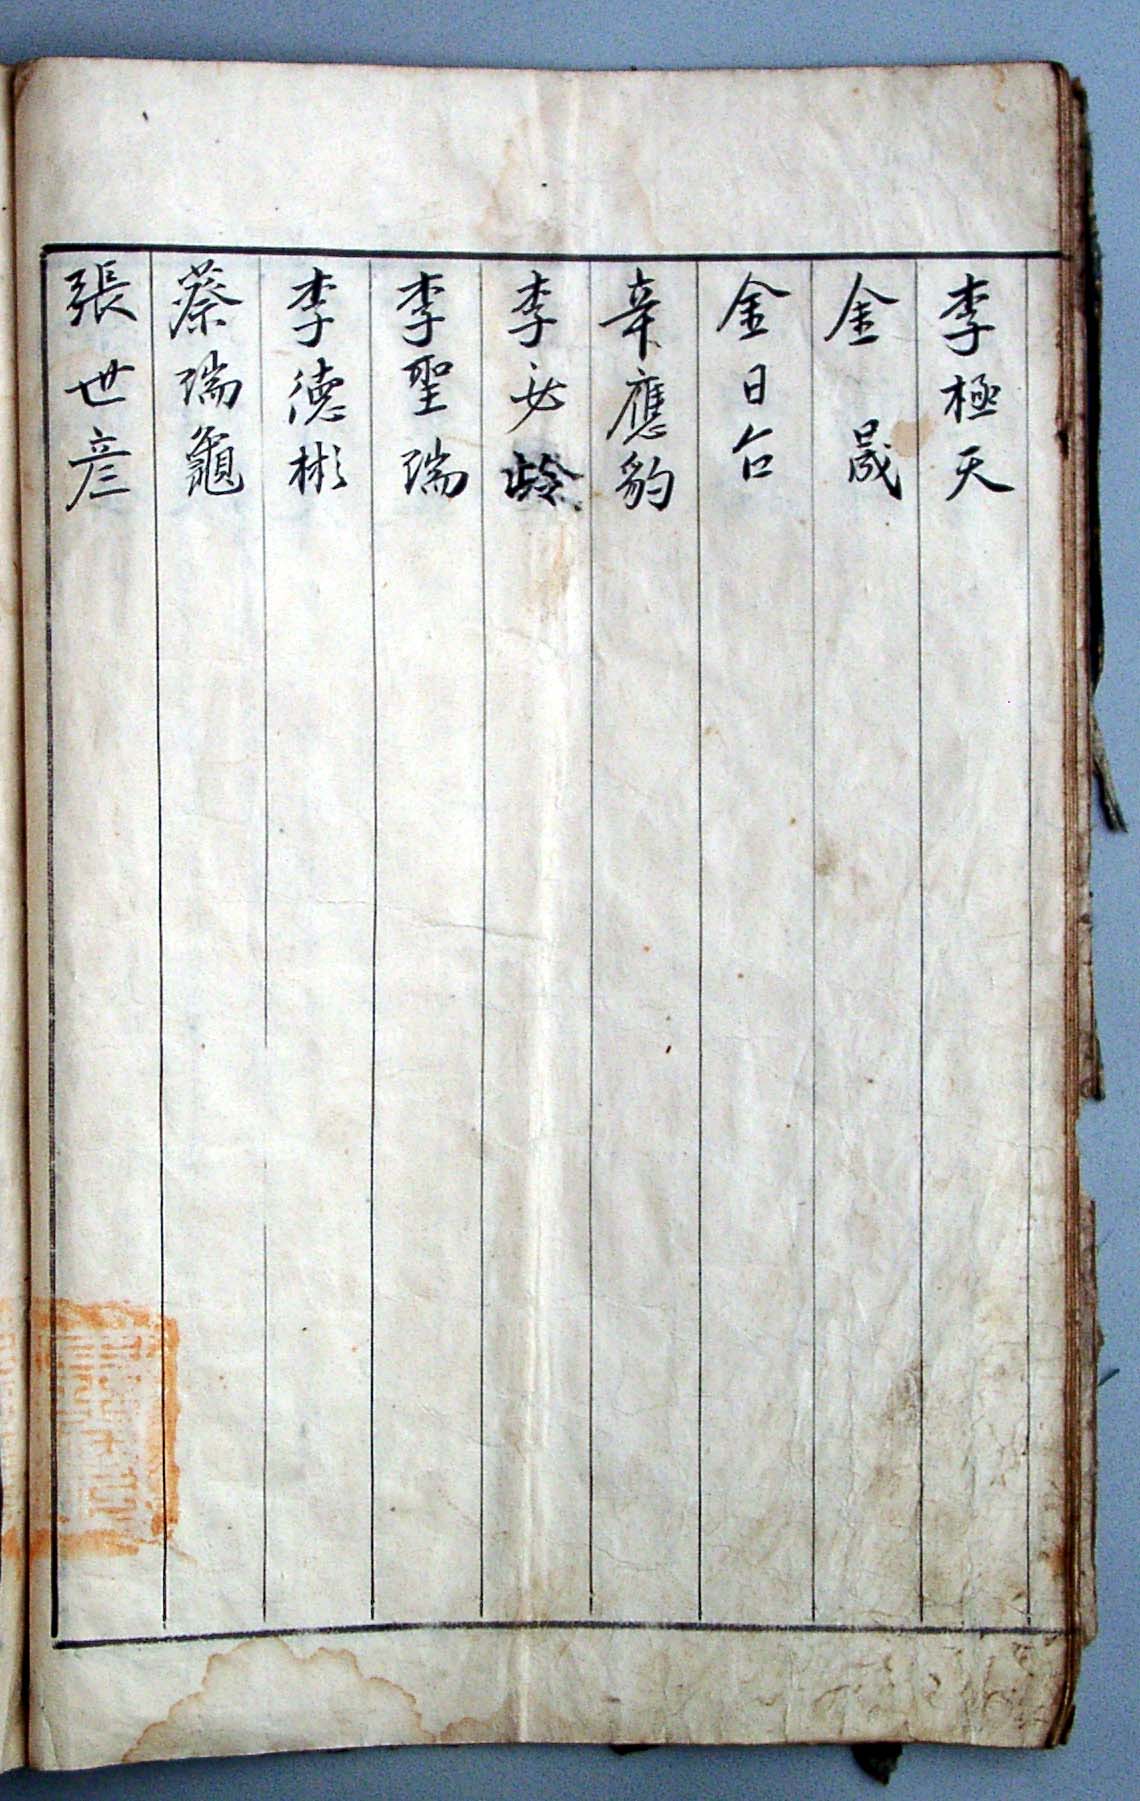 李極天
金晟
金日合
辛應豹
李必齡
李聖瑞
李德彬
蔡瑞龜
張世彦